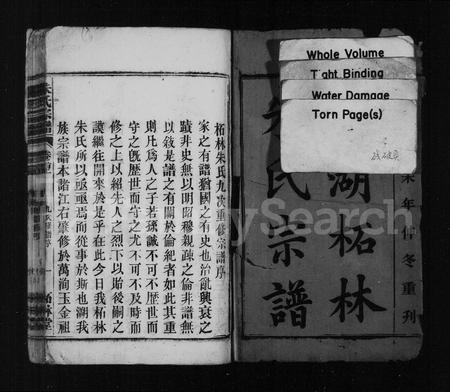 Whole Volume
Tight Binding
Water Damage
Torn Page(s)
未年仲冬重刊
湖柘林
朱氏宗譜
柘林朱氏九次重修宗譜序
家之有譜猶國之有史也治亂興衰之
蹟非史無以明昭穆親疎之倫非譜無
以敘是譜之有關於倫紀者如此其重
則凡為人之子若孫誠不可不歷世而
守之旣歷世而守之尤不可不及時而
修之上以紹先人之烈下以貽後嗣之
謨繼往開來於是乎在此今日我柘林
朱氏所以亟亟焉而從事於斯也溯我
族宗譜本諸江右肇修於萬洵玉金祖
朱氏宗譜
柘林堂